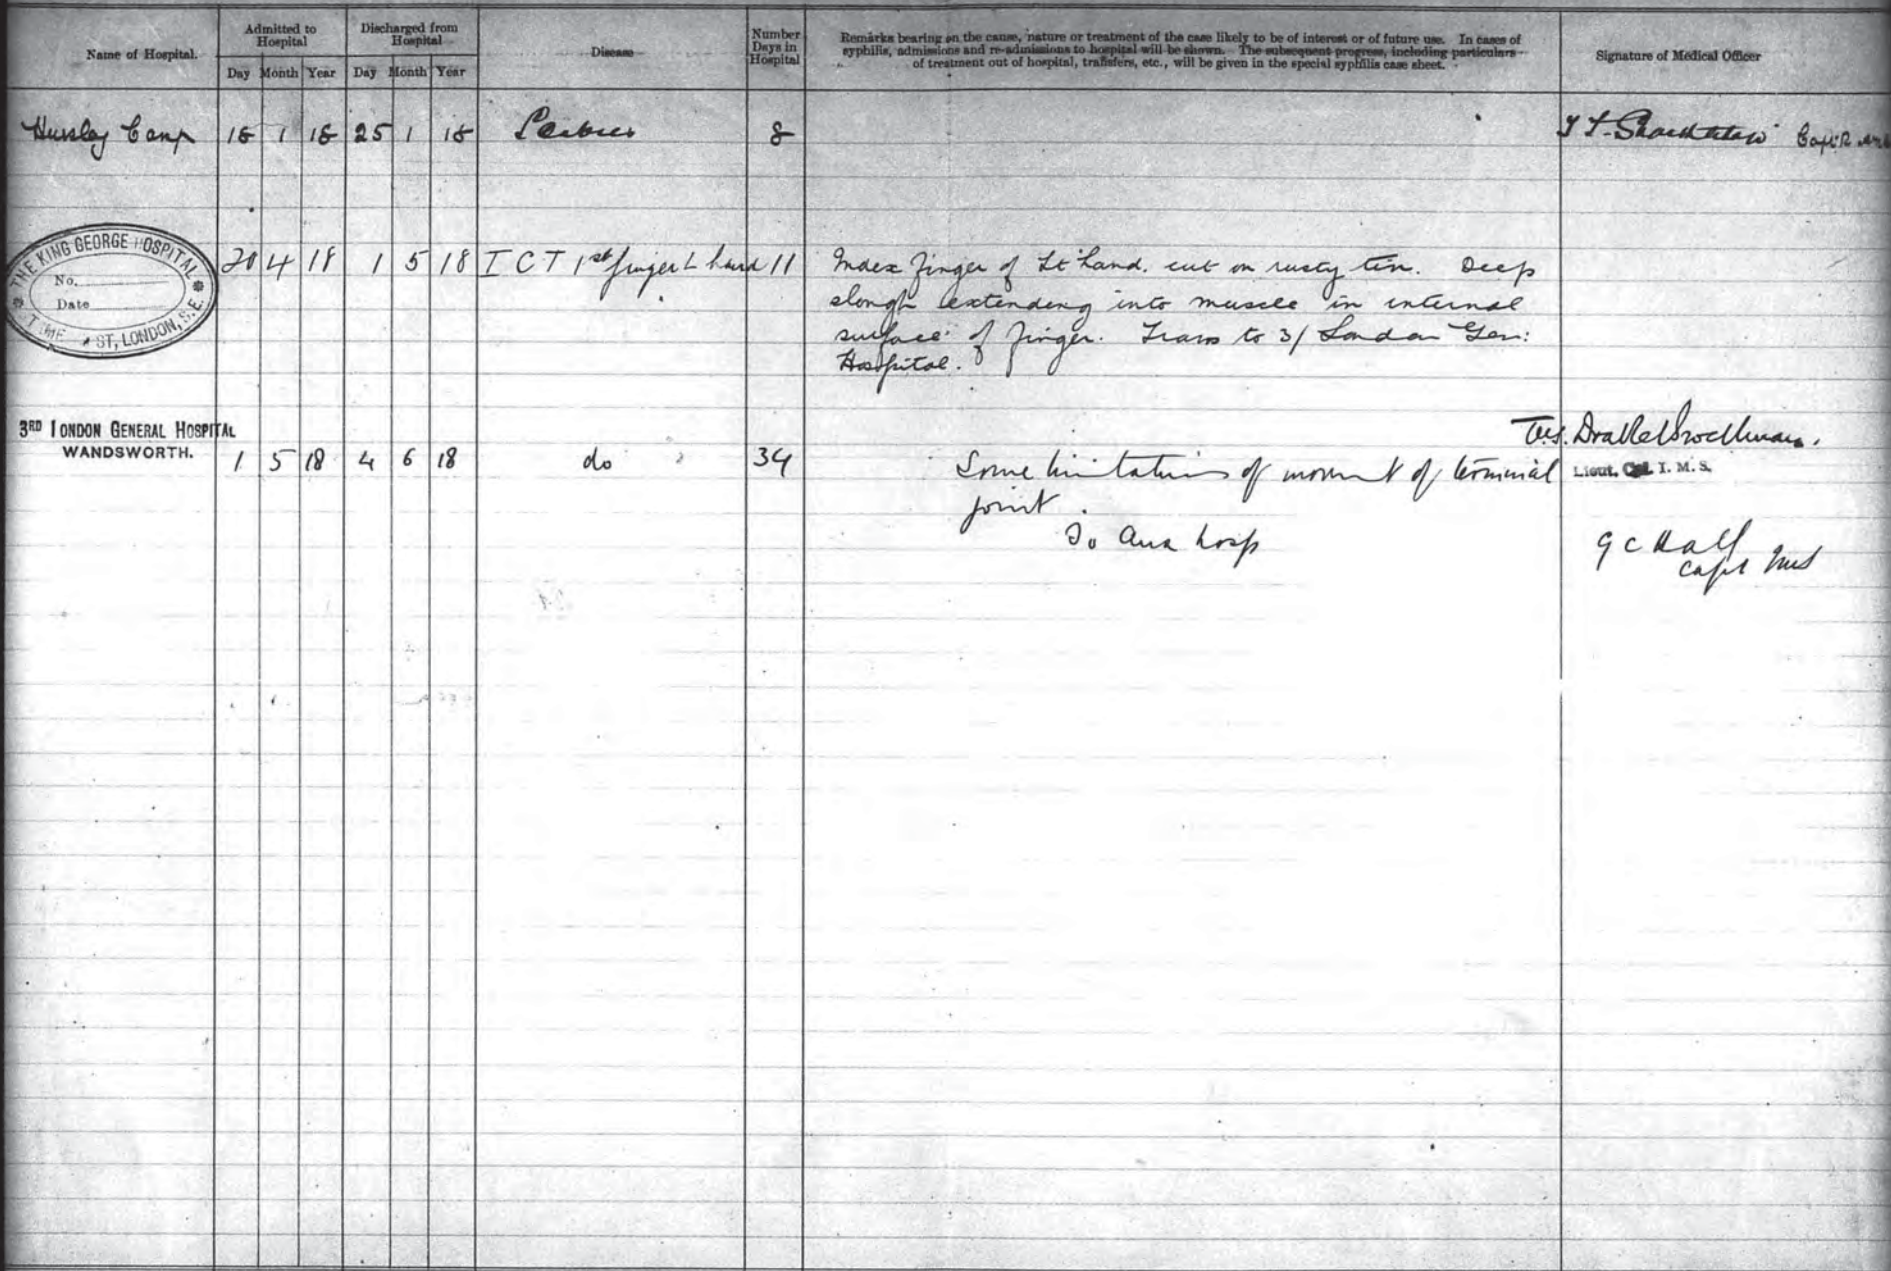 Name of Hospital.
Admitted to Hospital
Discharged from Hospital
Disease
Number Days in Hospital
Remarks bearing on the cause, nature or treatment of the case likely to be of interest or of future use. In cases of
syphilis, admissions and re-admissions to hospital will be shown. The subsequent progress, including particulars
of treatment out of hospital, transfers, etc., will be given in the special syphilis case sheet.
Signature of Medical Officer
Day Month Year Day Month Year
Hursley Camp 18 1 18 25 1 18 Scabies 8
THE KING GEORGE HOSPITAL
No.
Date
ST, LONDON, S.E.
20 4 18 1 5 18 I C T 1st finger L hand 11
Index finger of Lt hand. cut on rusty tin. Deep
slough extending into muscle in internal
surface of finger. Trans to 3/ London Gen:
Hospital.
3RD LONDON GENERAL HOSPITAL
WANDSWORTH.
1 5 18 4 6 18 do 34
Some limitation of movmt of terminal
joint.
To Aux hosp
Drake Brockman.
Lieut. Col. I. M. S.
G C Hall
Capt